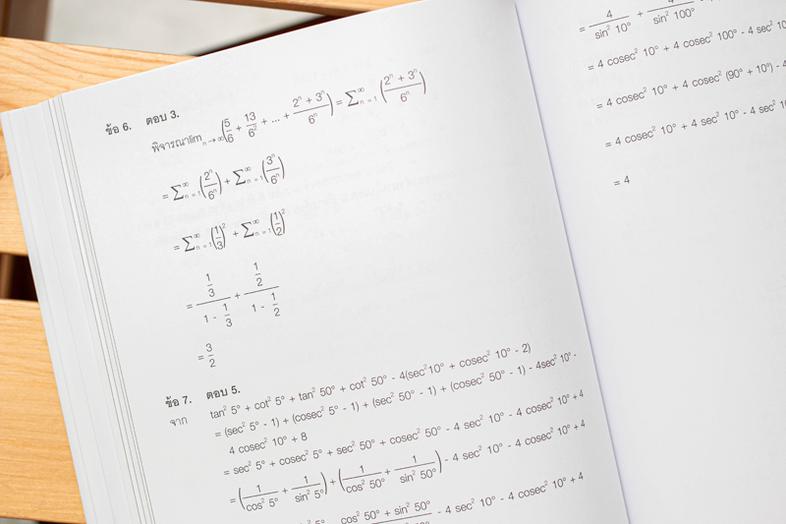 ข้อ 6. ตอบ 3.
พิจารณาlim n → ∞ (5/6 + 13/6² + ... + (2ⁿ + 3ⁿ)/6ⁿ) = ∑ⁿ₌₁^∞ ((2ⁿ + 3ⁿ)/6ⁿ)
= ∑ₙ₌₁^∞ (2ⁿ/6ⁿ) + ∑ₙ₌₁^∞ (3ⁿ/6ⁿ)
= ∑ₙ₌₁^∞ (1/3)² + ∑ₙ₌₁^∞ (1/2)²
= (1/3)/(1 - 1/3) + (1/2)/(1 - 1/2)
= 3/2
ข้อ 7. ตอบ 5.
จาก tan² 5° + cot² 5° + tan² 50° + cot² 50° - 4(sec²10° + cosec² 10° - 2)
= (sec² 5° - 1) + (cosec² 5° - 1) + (sec² 50° - 1) + (cosec² 50° - 1) - 4sec² 10° -
4 cosec² 10° + 8
= sec² 5° + cosec² 5° + sec² 50° + cosec² 50° - 4 sec² 10° - 4 cosec² 10° + 4
= (1/cos² 5° + 1/sin² 5°) + (1/cos² 50° + 1/sin² 50°) - 4 sec² 10° - 4 cosec² 10° + 4
cos² 50° + sin² 50° - 4 sec² 10° - 4 cosec² 10° + 4
= 4/sin² 10° + 4/sin² 100°
= 4 cosec² 10° + 4 cosec² 100° - 4 sec² 10°
= 4 cosec² 10° + 4 cosec² (90° + 10°) - 4
= 4 cosec² 10° + 4 sec² 10° - 4 sec² 10°
= 4